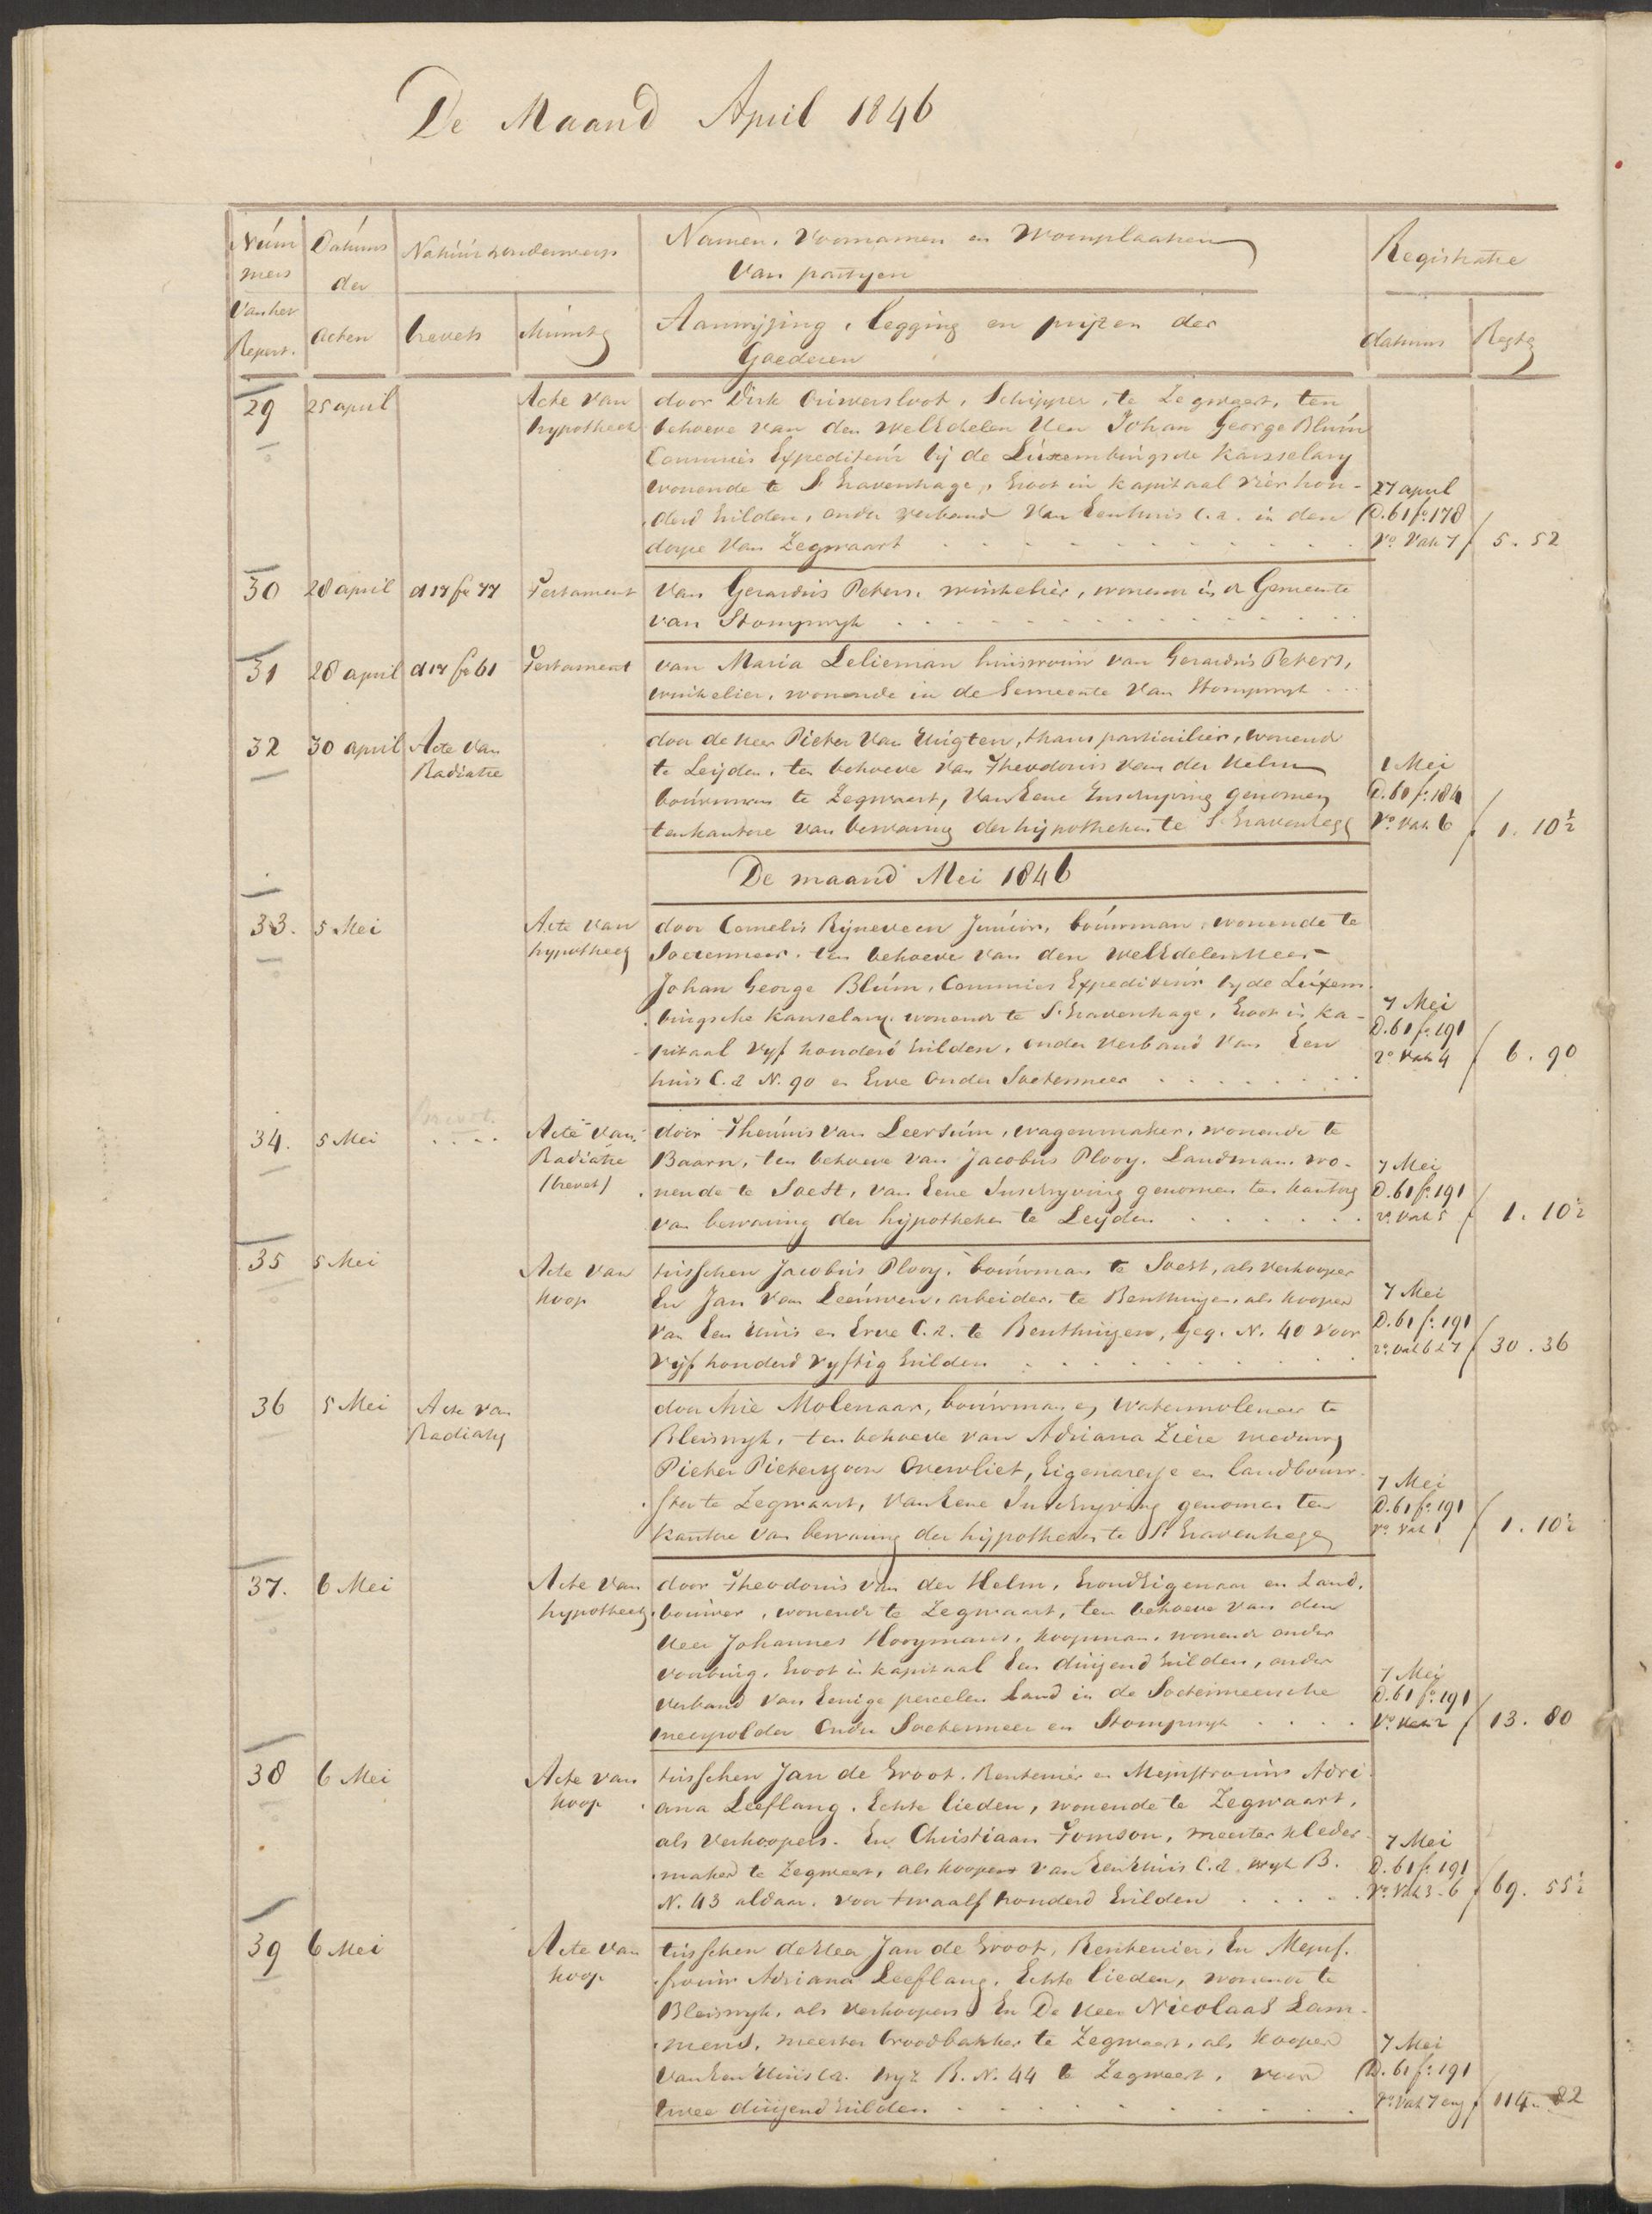 De Maand April 1846
Num Datums Natuur en onderwerp Namen, Voornamen en Woonplaatsen Registratie
mers der van partyen
van het Aanwyzing, legging en pryzen der
Repert. acten brevets Minuts Goederen datums Regte
29 25 april Acte van door Dirk , Schipper, te Zegwaart, ten
hypotheek behoeve van den WelEdelen Heer Johan George Blum
Commies Expediteur bij de Luxemburgsche Kansselary
wonende te S Gravenhage, Groot in Kapitaal vier hon- 27 april
derd Gulden, onder verband van Een huis C.a. in den D. 61 fo. 178
dorpe van Zegwaart . . . . . vo. vak 7 f 5. 52
30 28 april d 17 fo 77 Testament van Gerardus Peters, winkelier, wonende in de Gemeente
van Stompwyk . . . . .
31 28 april d 17 fo 61 Testament van Maria Lelieman huisvrouw van Gerardus Peters,
winkelier, wonende in de Gemeente van Stompwyk . . .
32 30 april Acte van door de Heer Pieter van , thans particulier, wonend
Radiatie te Leijden, ten behoeve van Theodorus van der Helm 1 Mei
bouwman te Zegwaart, van Eene Inschryving genomen D. 61 fo. 184
ten kantore van bewaring der hypotheken te S. Gravenhage vo. vak 6 f 1. 10½
De maand Mei 1846
33. 5 Mei Acte van door Cornelis Rijneveen Junior, bouwman, wonende te
hypotheek Soetermeer, ten behoeve van den WelEdelen Heer
Johan George Blum, Commies Expediteur by de Luxem
burgsche Kanselary, wonende te S. Gravenhage, Groot in Ka- 7 Mei
pitaal vyf honderd Gulden, onder verband van Een D. 61 fo. 191
huis C.a N. 90 en Erve onder Soetermeer . . . . ro vak 4 f 6. 90
Brevet.
34. 5 Mei . . . . Acte van door Theunis van Leersum, wagenmaker, wonende te
Radiatie Baarn, ten behoeve van Jacobus Plooy, Landman, wo- 7 Mei
(brevet) nende te Soest, van Eene Inschryving genomen ten kantore D. 61 fo. 191
van bewaring der hypotheken te Leyden . . . . vo. vak 5 f 1. 10½
35 5 Mei Acte van tusschen Jacobus Plooy, bouwman te Soest, als verkooper
koop En Jan van Leeuwen, arbeider te Benthuizen, als kooper 7 Mei
van Een Huis en Erve C.a. te Benthuizen, Geq. N. 40 voor D. 61 fo. 191
vyf honderd vyftig Gulden . . . . ro. vak 6 & 7 f 30. 36
36 5 Mei Acte van door Arie Molenaar, bouwman en Watermolenaar te
Radiatie Bleiswyk, ten behoeve van Adriana Ziere weduwe
Pieter Pieterszoon Overvliet, Eigenaresse en landbouw- 7 Mei
ster te Zegwaart, van Eene Inschryving genomen ten D. 61 fo. 191
kantore van bewaring der hypotheken te S. Gravenhage vo vak 1 f 1. 10½
37. 6 Mei Acte van door Theodorus van der Helm, GrondEigenaar en Land-
hypotheek bouwer, wonende te Zegwaart, ten behoeve van den
Heer Johannes Hooymans, koopman, wonende onder
Voorburg, Groot in kapitaal Een duizend Gulden, onder 7 Mei
verband van Eenige percelen Land in de Soetermeersche D. 61 fo. 191
meerpolder onder Soetermeer en Stompwyk . . . . vo vak 2 f 13. 80
38 6 Mei Acte van tusschen Jan de Groot, Rentenier en Mejuffrouw Adri
koop ana Leeflang, Echte lieden, wonende te Zegwaart,
als verkoopers. En Christiaan Tomson, meester kleder- 7 Mei
maker te Zegwaart, als kooper van Een Huis C.a. wyk B. D. 61 fo. 191
N. 43 aldaar, voor twaalf honderd Gulden . . . . vo. vak 3-6 f 69. 55½
39 6 Mei Acte van tusschen de Heer Jan de Groot, Rentenier, En Mejuf-
koop frouw Adriana Leeflang, Echte lieden, wonende te
Bleiswyk, als verkoopers En De Heer Nicolaas Lam-
mens, meester broodbakker te Zegwaart, als kooper 7 Mei
van Een Huis C.a. wyk B. N. 44 te Zegwaart, voor D. 61 fo. 191
twee duizend Gulden . . . . . vo. vak 7 f 114. 82